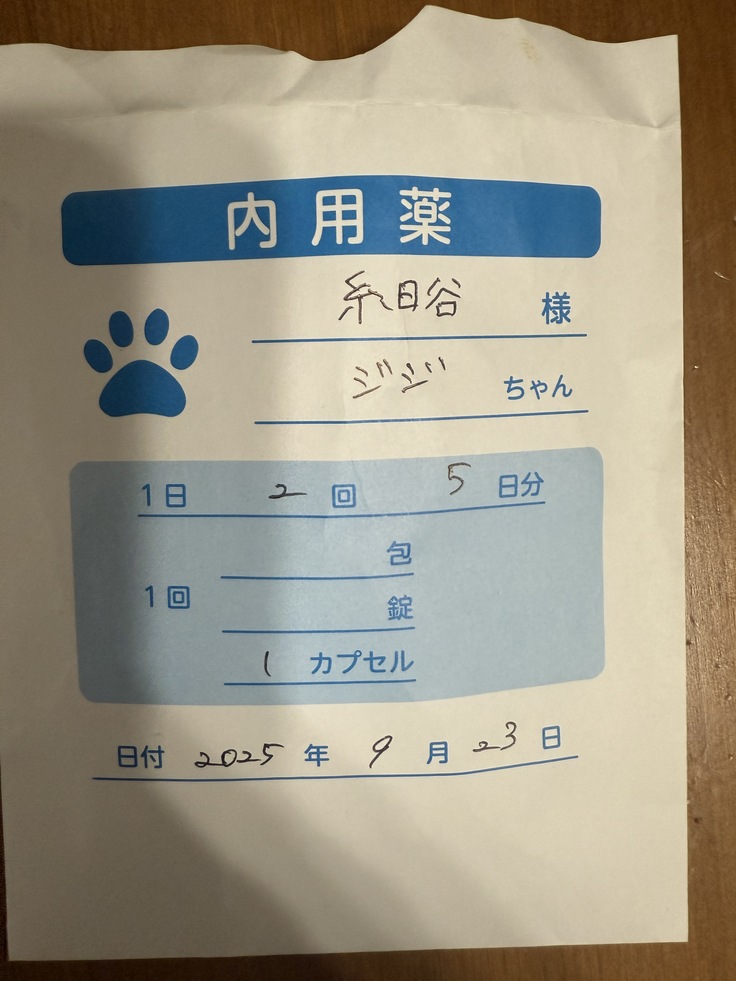 内用薬
糸日谷 様
ジジ ちゃん
1日 2 回 5 日分
包
1回 錠
1 カプセル
日付 2025 年 9 月 23 日